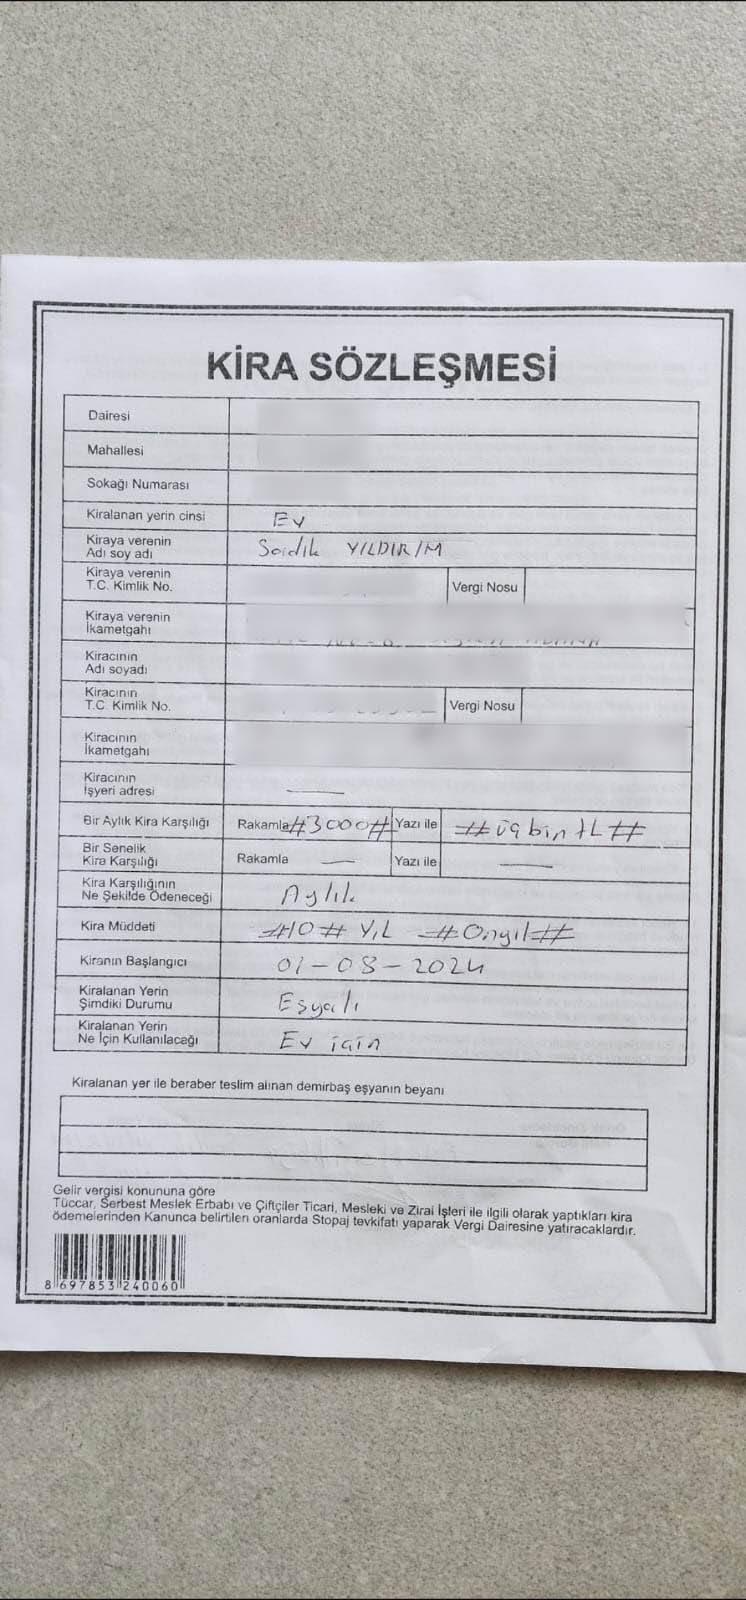 KİRA SÖZLEŞMESİ
Dairesi
Mahallesi
Sokağı Numarası
Kiralanan yerin cinsi Ev
Kiraya verenin
Adı soy adı Sadık YILDIRIM
Kiraya verenin
T.C. Kimlik No. Vergi Nosu
Kiraya verenin
İkametgahı
Kiracının
Adı soyadı
Kiracının
T.C. Kimlik No. Vergi Nosu
Kiracının
İkametgahı
Kiracının
İşyeri adresi —
Bir Aylık Kira Karşılığı Rakamla #3000# Yazı ile #üçbin tL#
Bir Senelik
Kira Karşılığı Rakamla — Yazı ile —
Kira Karşılığının
Ne Şekilde Ödeneceği Aylık
Kira Müddeti #10# YIL #Onyıl#
Kiranın Başlangıcı 01-08-2024
Kiralanan Yerin
Şimdiki Durumu Eşyalı
Kiralanan Yerin
Ne İçin Kullanılacağı Ev için
Kiralanan yer ile beraber teslim alınan demirbaş eşyanın beyanı
Gelir vergisi konununa göre
Tüccar, Serbest Meslek Erbabı ve Çiftçiler Ticari, Mesleki ve Zirai İşleri ile ilgili olarak yaptıkları kira
ödemelerinden Kanunca belirtilen oranlarda Stopaj tevkifatı yaparak Vergi Dairesine yatıracaklardır.
8 697853 240060